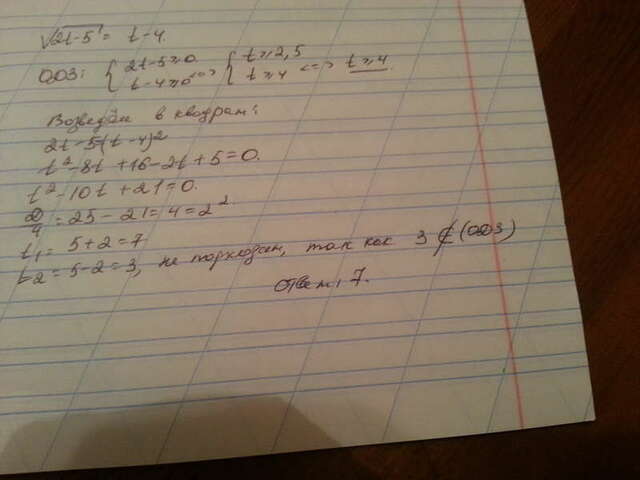 √2t-5 = t-4.
ОДЗ: { 2t-5≥0 t-4≥0 <=> { t≥2,5 t≥4 <=> t≥4
Возведём в квадрат:
2t-5(t-4)²
t²-8t+16-2t+5=0.
t²-10t+21=0.
D/4=25-21=4=2².
t₁=5+2=7
t₂=5-2=3, не подходит, так как 3∉(ОДЗ)
Ответ: 7.